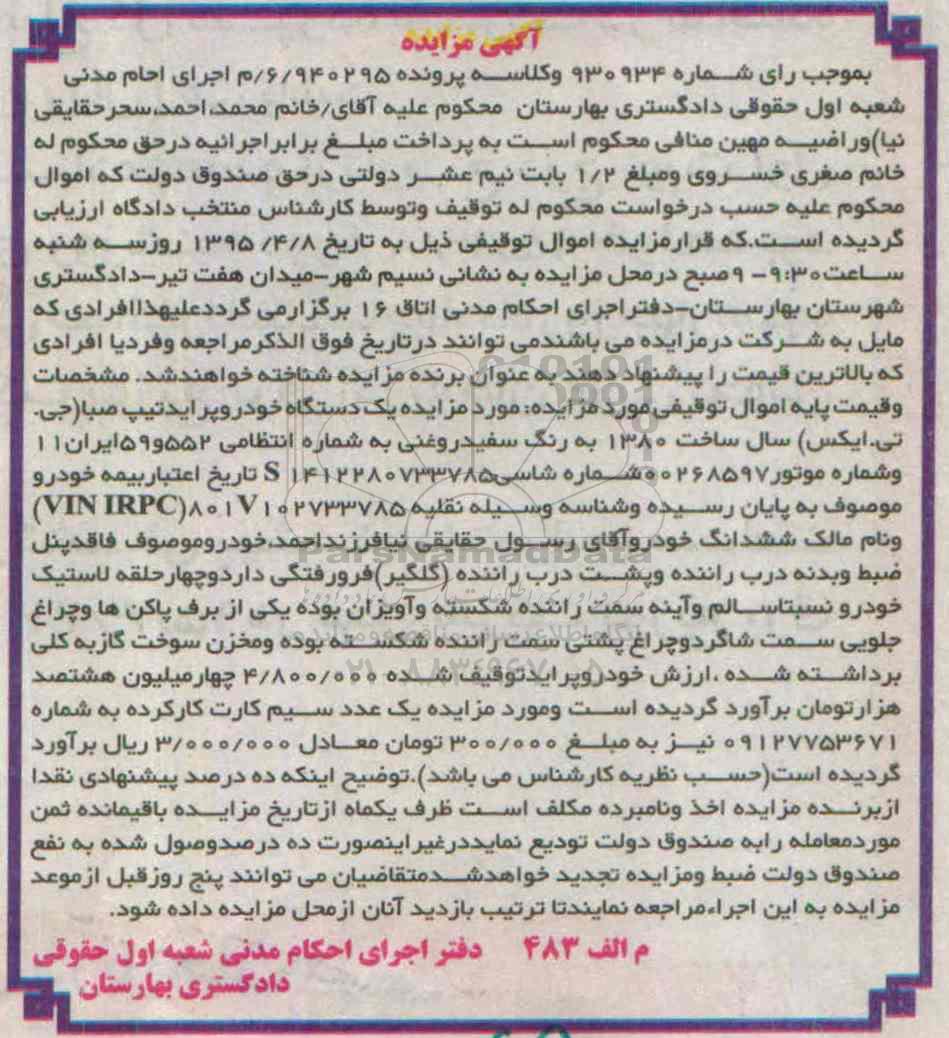 آگهی مزایده
بموجب رای شماره ۹۳۰۹۳۴ وکلاسه پرونده ۶/۹۴۰۲۹۵/م اجرای احام مدنی
شعبه اول حقوقی دادگستری بهارستان محکوم علیه آقای/خانم محمد،احمد،سحرحقایقی
نیا)وراضیه مهین منافی محکوم است به پرداخت مبلغ برابراجرائیه درحق محکوم له
خانم صغری خسروی ومبلغ ۱/۲ بابت نیم عشر دولتی درحق صندوق دولت که اموال
محکوم علیه حسب درخواست محکوم له توقیف وتوسط کارشناس منتخب دادگاه ارزیابی
گردیده است.که قرارمزایده اموال توقیفی ذیل به تاریخ ۱۳۹۵/۴/۸ روزسه شنبه
ساعت۹:۳۰-۹ صبح درمحل مزایده به نشانی نسیم شهر-میدان هفت تیر-دادگستری
شهرستان بهارستان-دفتراجرای احکام مدنی اتاق ۱۶ برگزارمی گرددعلیهذاافرادی که
مایل به شرکت درمزایده می باشندمی توانند درتاریخ فوق الذکرمراجعه وفردیا افرادی
که بالاترین قیمت را پیشنهاد دهند به عنوان برنده مزایده شناخته خواهندشد. مشخصات
وقیمت پایه اموال توقیفی مورد مزایده: مورد مزایده یک دستگاه خودروپرایدتیپ صبا(جی.
تی.ایکس) سال ساخت ۱۳۸۰ به رنگ سفیدروغنی به شماره انتظامی ۵۵۲و۵۹ایران۱۱
وشماره موتور۰۰۲۶۸۵۹۷شماره شاسیS ۱۴۱۲۲۸۰۷۳۳۷۸۵ تاریخ اعتباربیمه خودرو
موصوف به پایان رسیده وشناسه وسیله نقلیه ۸۰۱V۱۰۲۷۳۳۷۸۵(VIN IRPC)
ونام مالک ششدانگ خودروآقای رسول حقایقی نیافرزنداحمد،خودروموصوف فاقدپنل
ضبط وبدنه درب راننده وپشت درب راننده (گلگیر)فرورفتگی داردوچهارحلقه لاستیک
خودرو نسبتاسالم وآینه سمت راننده شکسته وآویزان بوده یکی از برف پاکن ها وچراغ
جلویی سمت شاگردوچراغ پشتی سمت راننده شکسته بوده ومخزن سوخت گازبه کلی
برداشته شده ،ارزش خودروپرایدتوقیف شده ۴/۸۰۰/۰۰۰ چهارمیلیون هشتصد
هزارتومان برآورد گردیده است ومورد مزایده یک عدد سیم کارت کارکرده به شماره
۰۹۱۲۷۷۵۳۶۷۱ نیز به مبلغ ۳۰۰/۰۰۰ تومان معادل ۳/۰۰۰/۰۰۰ ریال برآورد
گردیده است(حسب نظریه کارشناس می باشد).توضیح اینکه ده درصد پیشنهادی نقدا
ازبرنده مزایده اخذ ونامبرده مکلف است ظرف یکماه ازتاریخ مزایده باقیمانده ثمن
موردمعامله رابه صندوق دولت تودیع نمایددرغیراینصورت ده درصدوصول شده به نفع
صندوق دولت ضبط ومزایده تجدید خواهدشدمتقاضیان می توانند پنج روزقبل ازموعد
مزایده به این اجراءمراجعه نمایندتا ترتیب بازدید آنان ازمحل مزایده داده شود.
م الف ۴۸۳ دفتر اجرای احکام مدنی شعبه اول حقوقی
دادگستری بهارستان
ParsNamadData